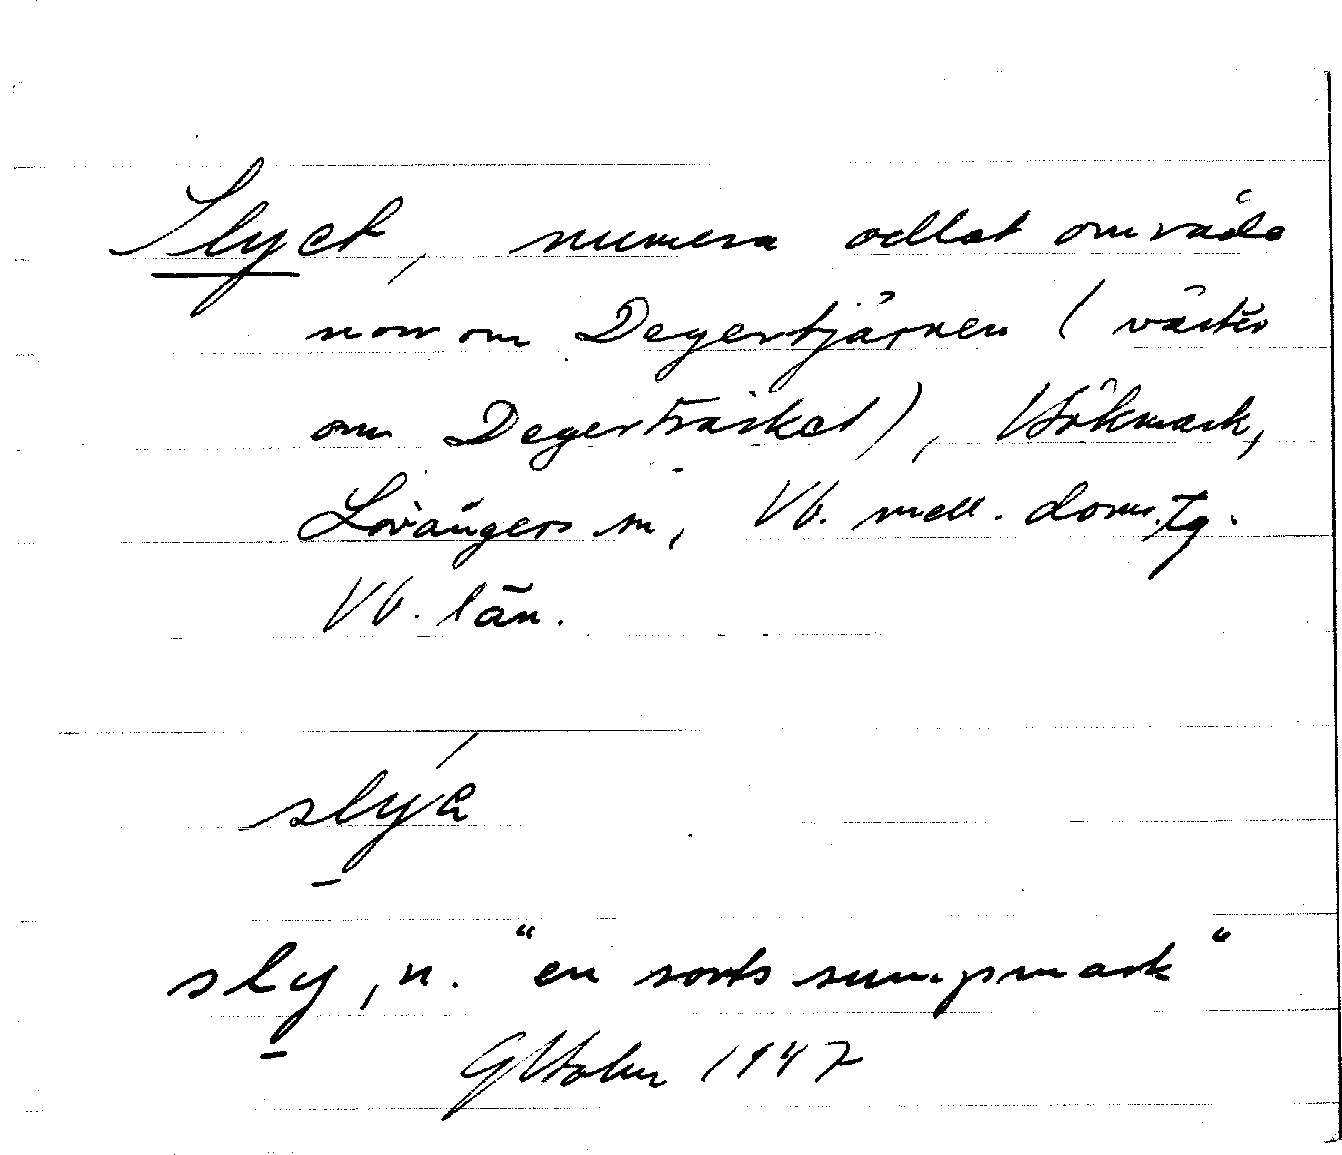 Slyet, numera odlat område
norr om Degertjärnen (väster
om Degerträsket), Hökmark,
Lövångers sn, Vb. mell. doms.tg.
Vb. län.
slýa
sly, n. "en sorts sumpmark"
GHolm 1947